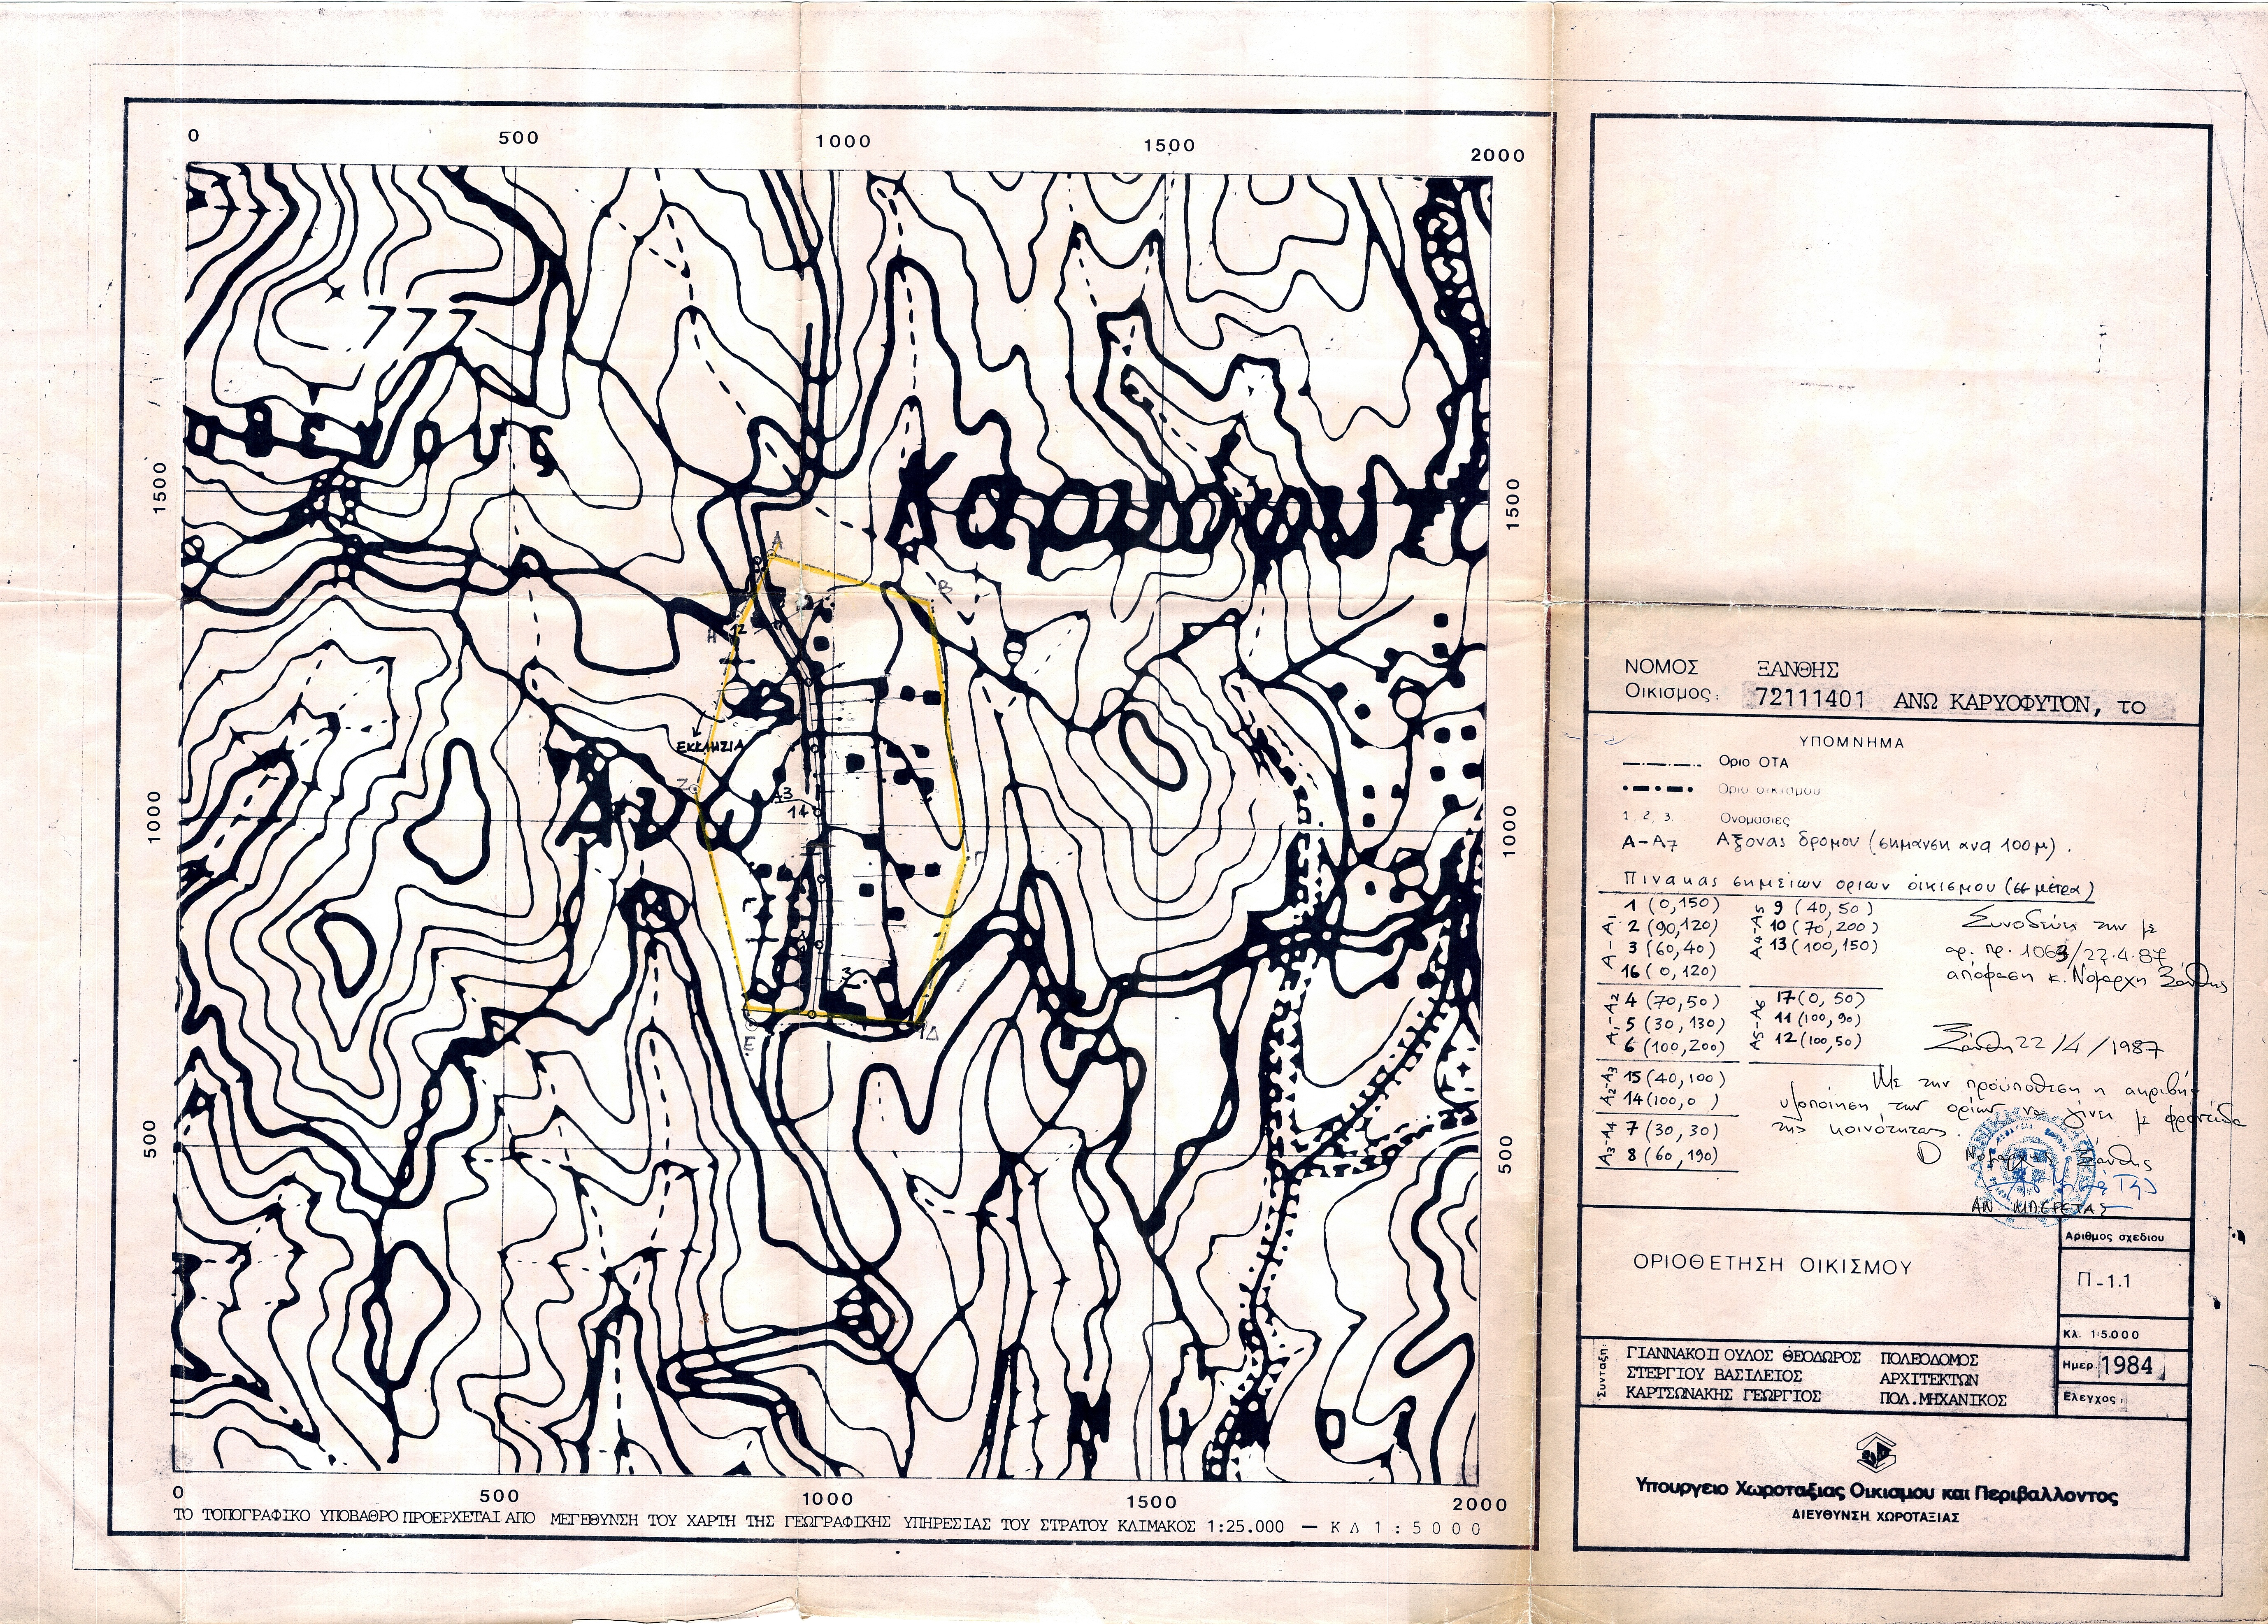 0 500 1000 1500 2000
777
1500
1500
Καρυόφυτ
Α
Β
Η
12
ΕΚΚΛΗΣΙΑ
Ζ
13
14
1000
1000
Άν
Γ
3
Ε
Δ
500
500
0 500 1000 1500 2000
ΤΟ ΤΟΠΟΓΡΑΦΙΚΟ ΥΠΟΒΑΘΡΟ ΠΡΟΕΡΧΕΤΑΙ ΑΠΟ ΜΕΓΕΘΥΝΣΗ ΤΟΥ ΧΑΡΤΗ ΤΗΣ ΓΕΩΓΡΑΦΙΚΗΣ ΥΠΗΡΕΣΙΑΣ ΤΟΥ ΣΤΡΑΤΟΥ ΚΛΙΜΑΚΟΣ 1:25.000 — ΚΛ 1:5000
ΝΟΜΟΣ ΞΑΝΘΗΣ
Οικισμος: 72111401 ΑΝΩ ΚΑΡΥΟΦΥΤΟΝ, το
ΥΠΟΜΝΗΜΑ
Οριο ΟΤΑ
Οριο οικισμου
1, 2, 3. Ονομασιες
Α-Α7 Αξονας δρομου (σημανση ανα 100μ).
Πινακας σημειων οριων οικισμου (σε μετρα)
Α-Α1
1 (0,150)
2 (90,120)
3 (60,40)
16 (0,120)
Α4-Α5
9 (40,50)
10 (70,200)
13 (100,150)
Α1-Α2
4 (70,50)
5 (30,130)
6 (100,200)
Α5-Α6
17 (0,50)
11 (100,90)
12 (100,50)
Α2-Α3
15 (40,100)
14 (100,0)
Α3-Α4
7 (30,30)
8 (60,190)
Συνοδεύει την με
αρ. πρ. 1063/22.4.87
απόφαση κ. Νομάρχη Ξάνθης
Ξάνθη 22/4/1987
Με την προϋπόθεση η ακριβής
υλοποίηση των ορίων να γίνει με φροντίδα
της κοινότητας.
Ο Νομάρχης Ξάνθης
ΑΝ. ΜΠΕΡΕΤΑΣ
ΟΡΙΟΘΕΤΗΣΗ ΟΙΚΙΣΜΟΥ
Αριθμος σχεδιου
Π-1.1
Κλ. 1:5.000
Ημερ. 1984
Ελεγχος:
Συνταξη:
ΓΙΑΝΝΑΚΟΠΟΥΛΟΣ ΘΕΟΔΩΡΟΣ ΠΟΛΕΟΔΟΜΟΣ
ΣΤΕΡΓΙΟΥ ΒΑΣΙΛΕΙΟΣ ΑΡΧΙΤΕΚΤΩΝ
ΚΑΡΤΣΩΝΑΚΗΣ ΓΕΩΡΓΙΟΣ ΠΟΛ.ΜΗΧΑΝΙΚΟΣ
Υπουργειο Χωροταξιας Οικισμου και Περιβαλλοντος
ΔΙΕΥΘΥΝΣΗ ΧΩΡΟΤΑΞΙΑΣ